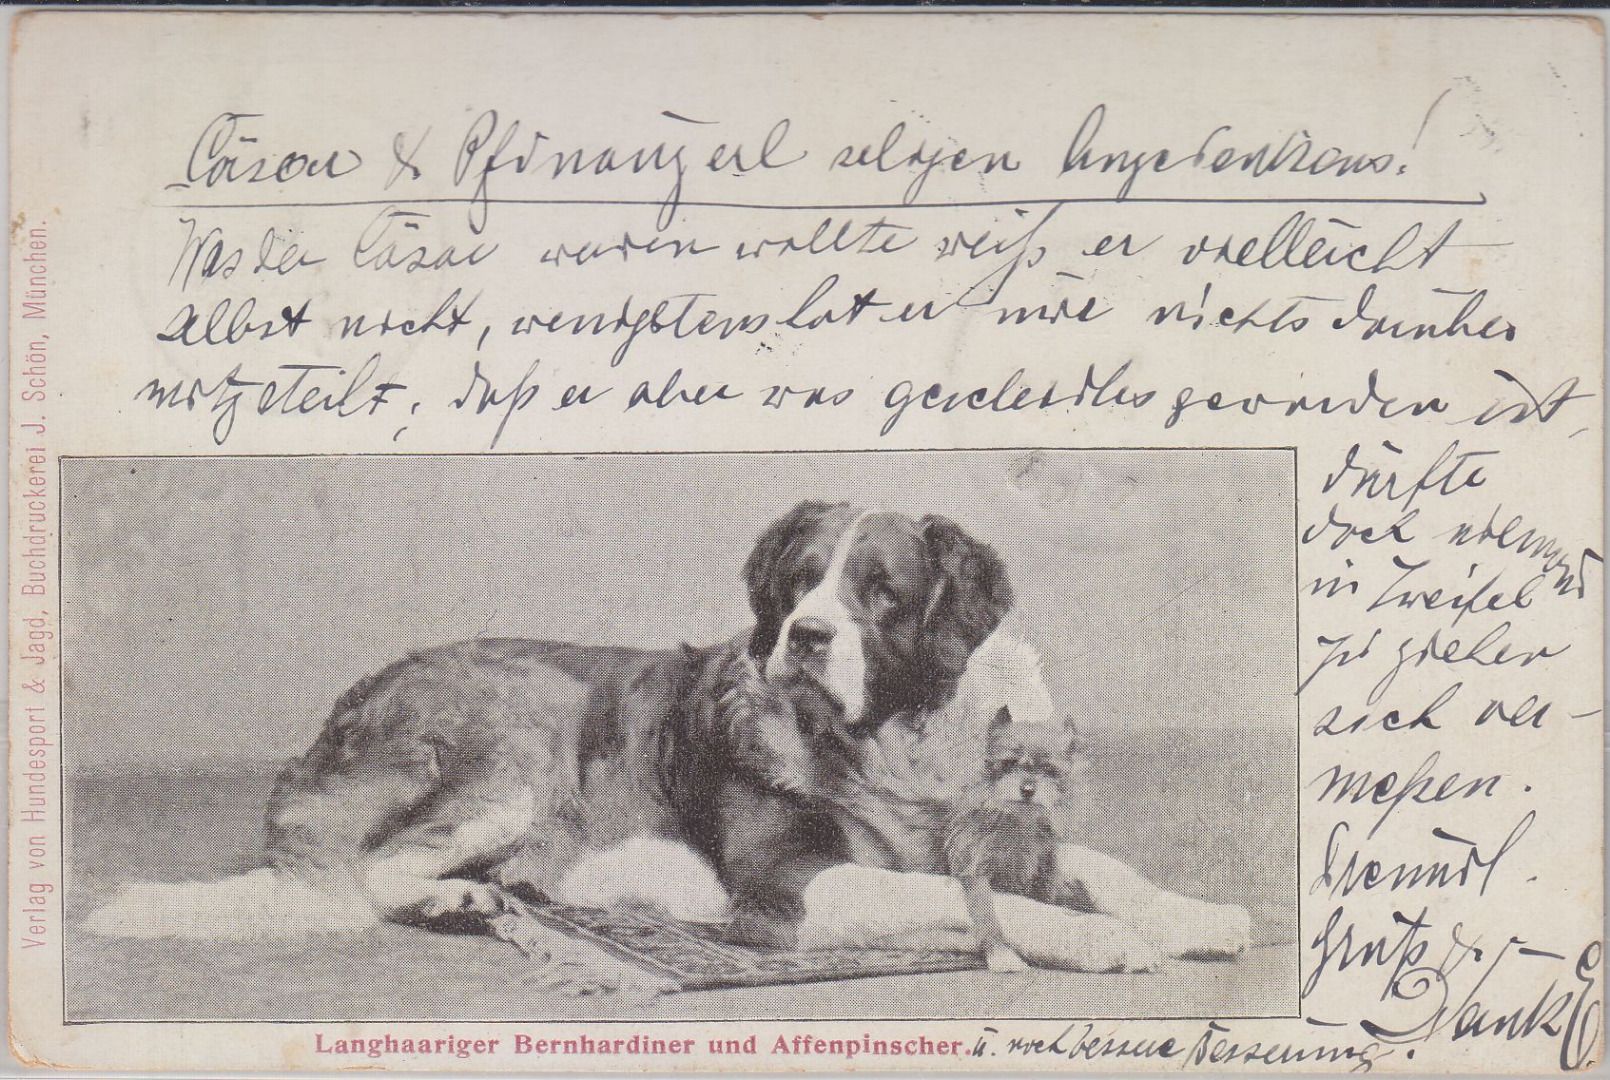 Cäsar & Pfinauzerl seligen Angedenkens!
Was der Cäsar werden wollte weiß er vielleicht
selbst nicht, wenigstens hat er mir nichts darüber
mitgeteilt, daß er aber was gescheidtes geworden ist,
dürfte
doch niemand
in Zweifel
zu ziehen
sich ver-
meßen.
Freundl.
Gruß & -
Dank
u. noch bessere Besserung.
Langhaariger Bernhardiner und Affenpinscher.
Verlag von Hundesport & Jagd, Buchdruckerei J. Schön, München.